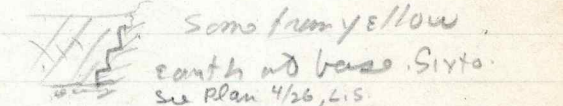 Some from yellow
earth at base. Sixto.
See Plan 4/26, L.S.